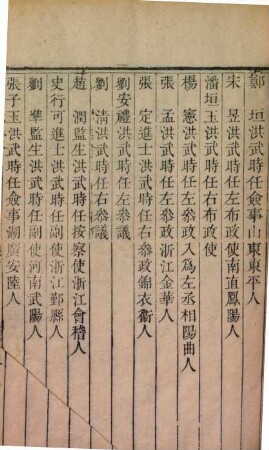 鄭　垣洪武時任僉事山東東平人
宋　昱洪武時任左布政使南直鳳陽人
潘垣玉洪武時任右布政使
楊　憲洪武時任左叅政入為左丞相陽曲人
張　孟洪武時任左叅政浙江金華人
張　定進士洪武時任右叅政錦衣衛人
劉安禮洪武時任左叅議
劉　清洪武時任右叅議
趙　潤監生洪武時任按察使浙江會稽人
史行可進士洪武時任副使浙江鄞縣人
劉　凖監生洪武時任副使河南武陽人
張子玉洪武時任僉事湖廣安陸人